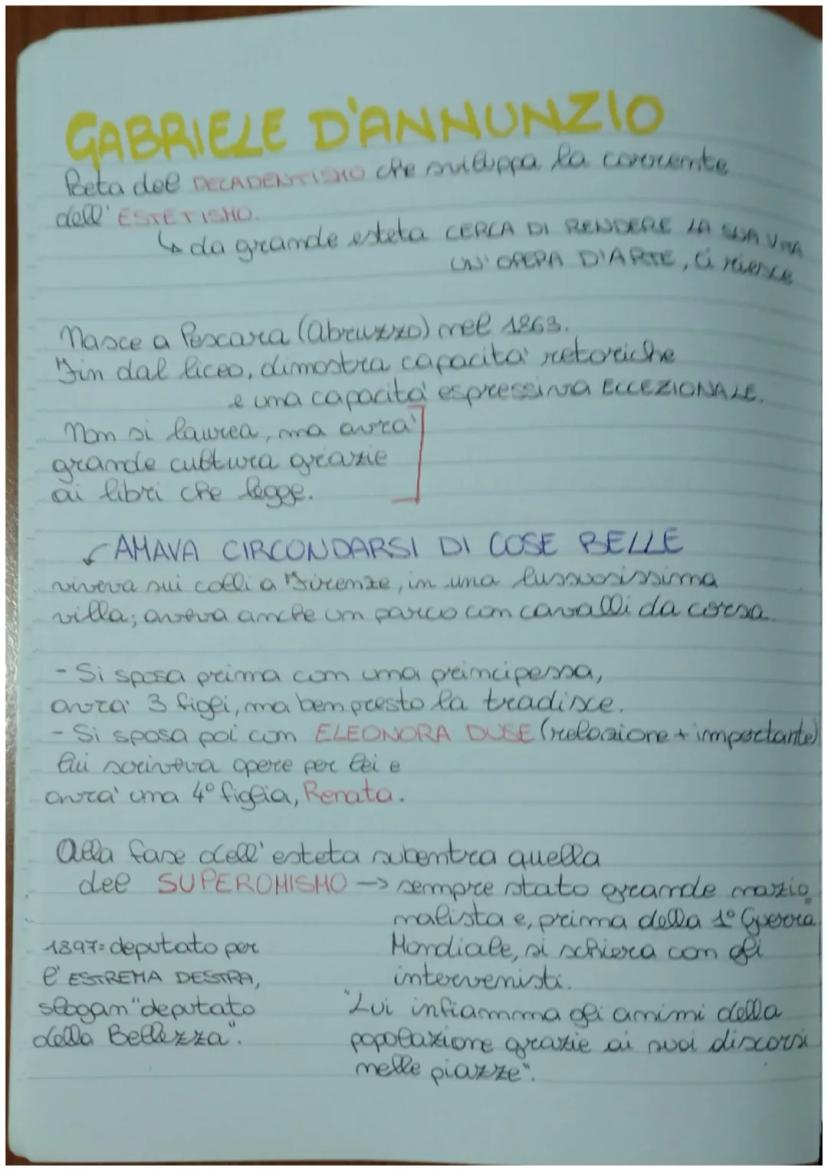 GABRIELE D'ANNUNZIO
Poeta del DECADENTISMO che sviluppa la corrente
dell'ESTETISMO.
↳ da grande esteta CERCA DI RENDERE LA SUA VITA
UN'OPERA D'ARTE, ci riesce
Nasce a Pescara (Abruzzo) nel 1863.
Fin dal liceo, dimostra capacità retoriche
e una capacità espressiva ECCEZIONALE.
Non si laurea, ma avrà
grande cultura grazie
ai libri che legge.
AMAVA CIRCONDARSI DI COSE BELLE
viveva sui colli a Firenze, in una lussuosissima
villa; aveva anche un parco con cavalli da corsa.
- Si sposa prima con una principessa,
avrà 3 figli, ma ben presto la tradisce.
- Si sposa poi con ELEONORA DUSE (relazione + importante)
lui scriveva opere per lei e
avrà una 4° figlia, Renata.
Alla fase dell'esteta subentra quella
del SUPEROMISMO → sempre stato grande nazio
nalista e, prima della 1° Guerra
Mondiale, si schiera con gli
interventisti.
1897= deputato per
l'ESTREMA DESTRA,
slogan "deputato
della Bellezza".
"Lui infiamma gli animi della
popolazione grazie ai suoi discorsi
nelle piazze".